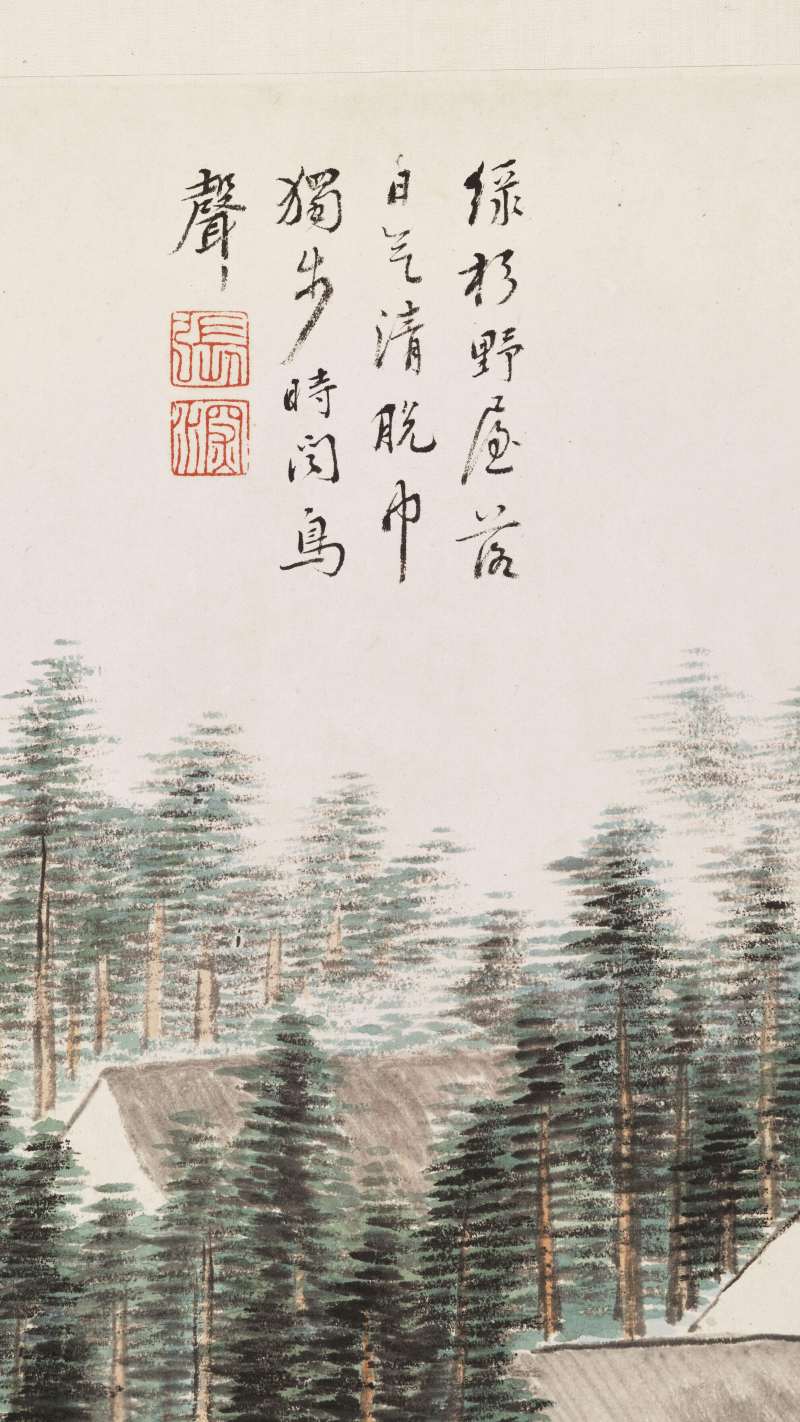 綠杉野屋落
日气清脫巾
獨步時聞鳥
聲
張
深